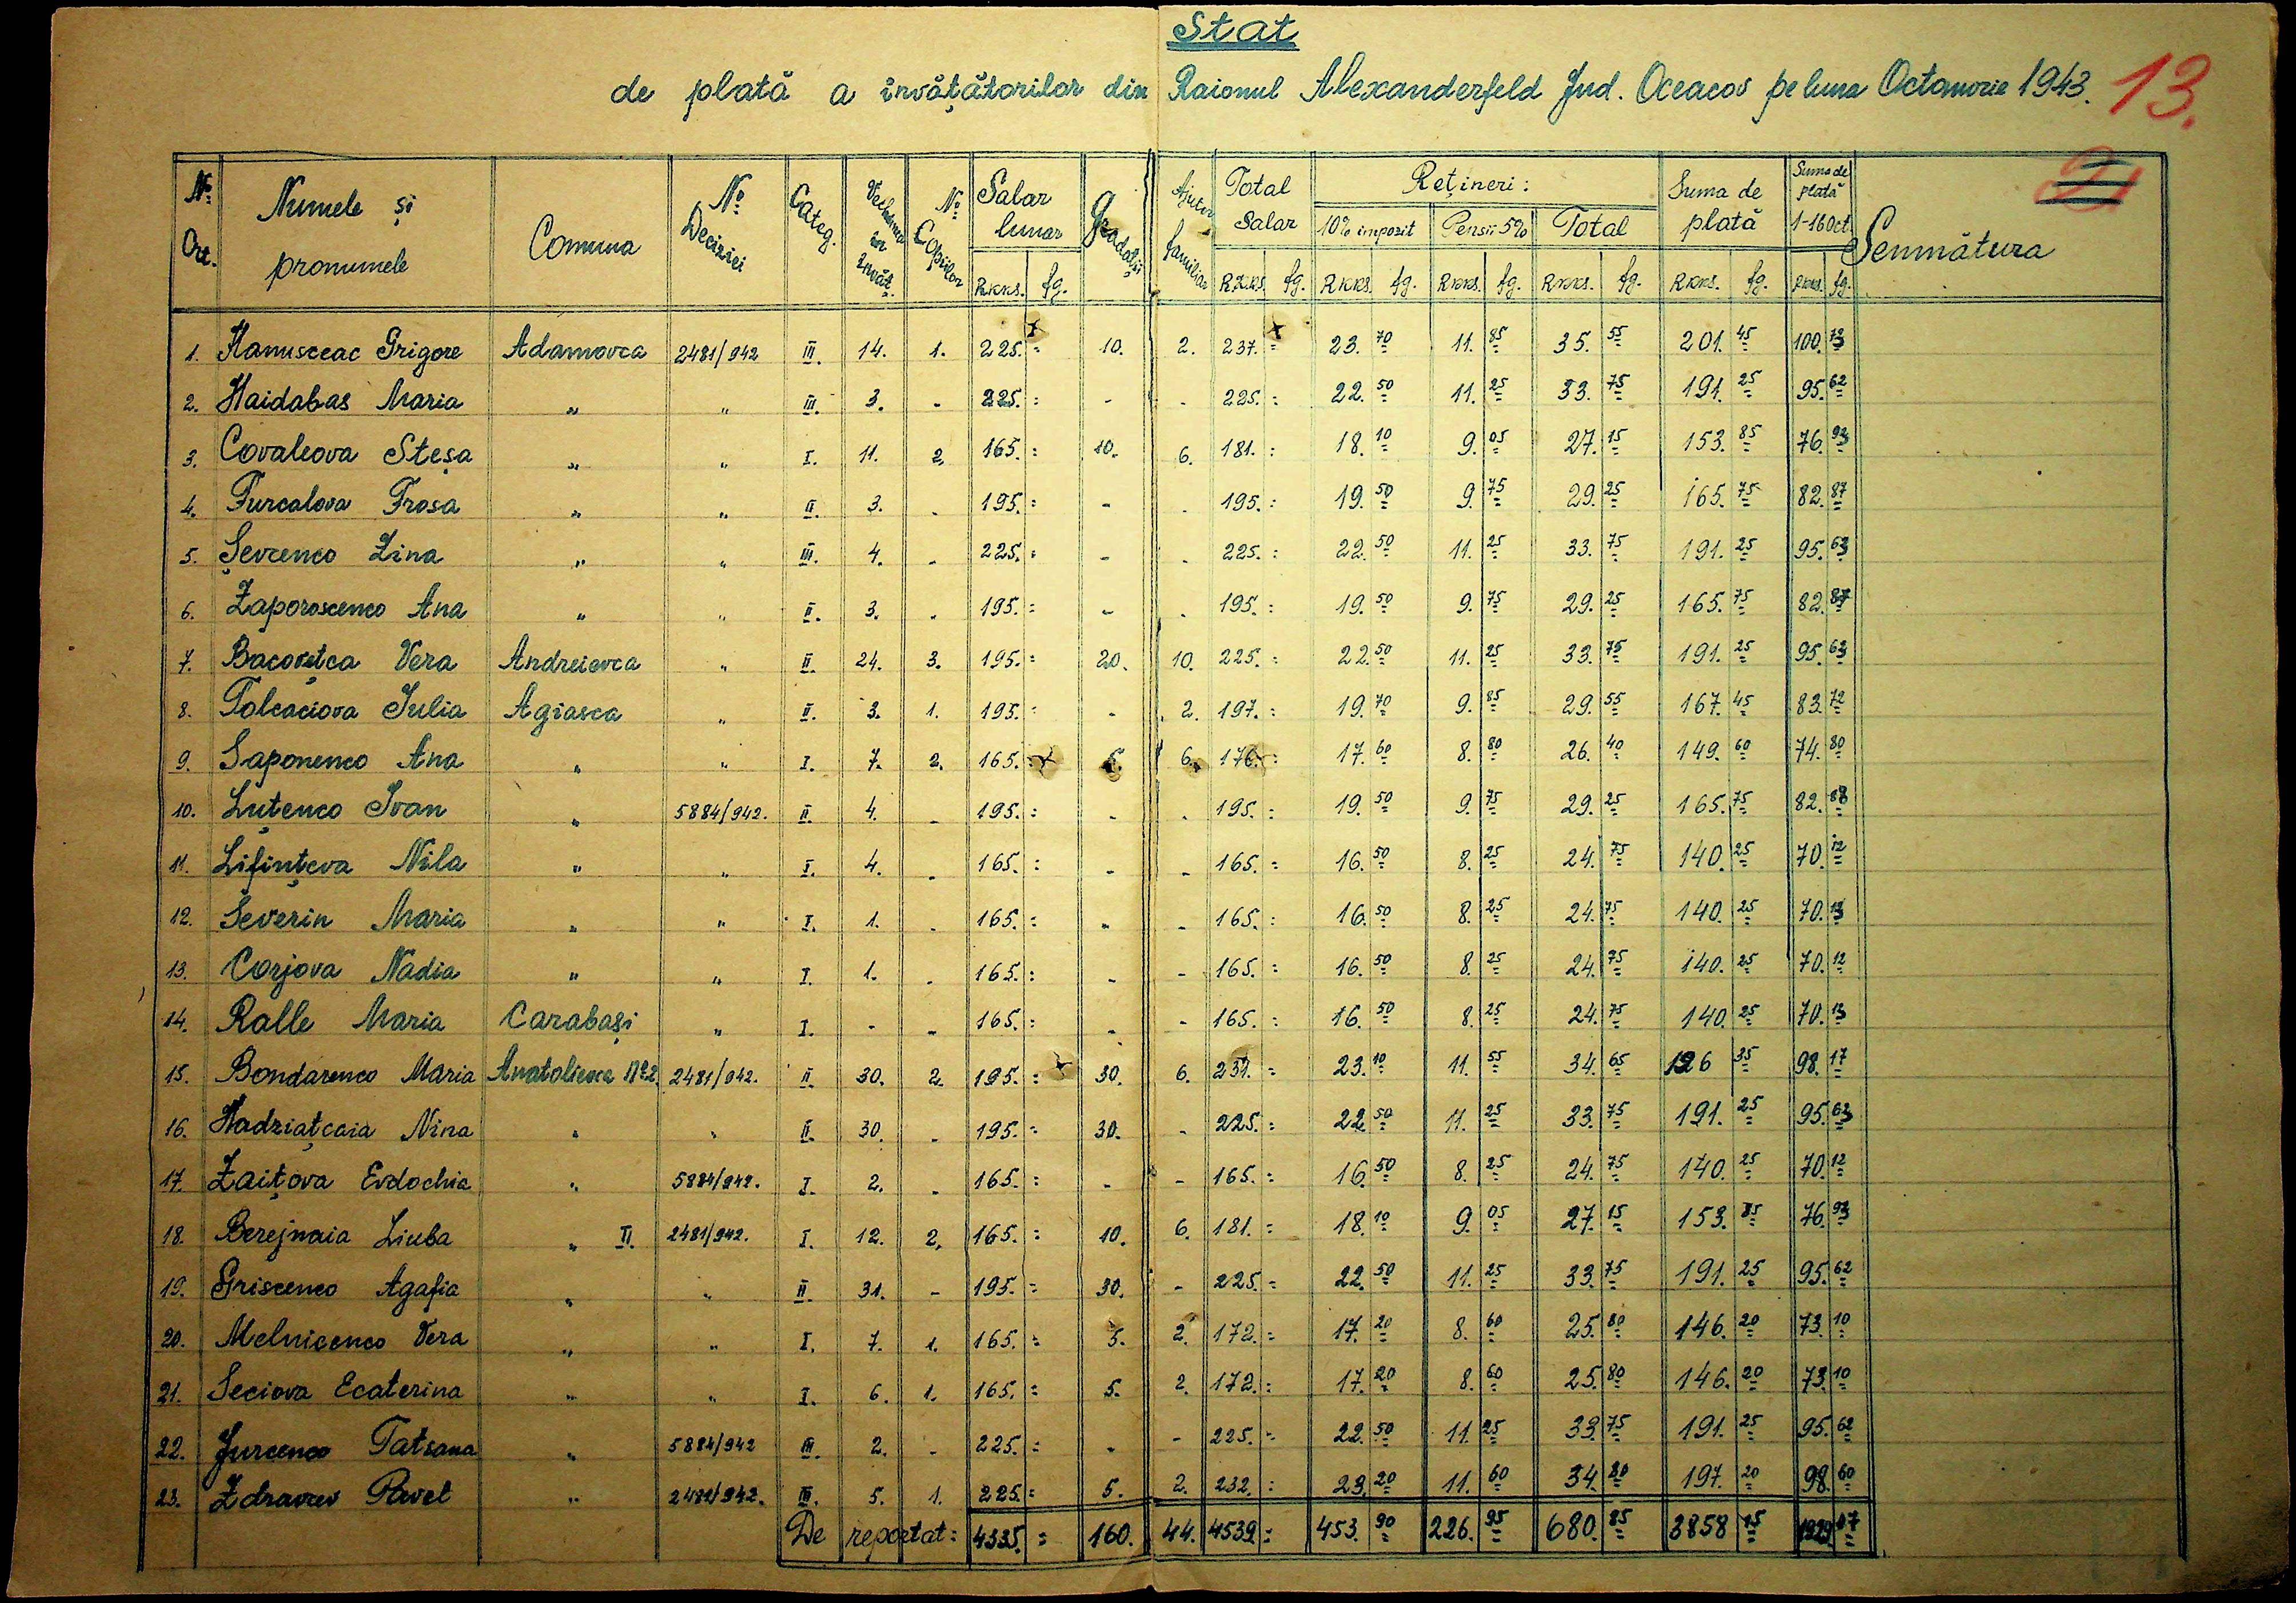 Stat
de plată a învățătorilor din Raionul Alexanderfeld Jud. Oceacov pe luna Octomvrie 1943. 13.
No. Crt. Numele și pronumele Comuna No Deciziei Categ. Vechimea în învăț. No Copiilor Salar lunar Gradații Ajutor familiar Total Salar Rețineri: Suma de plată Suma de plată 1-16 Oct. Semnătura
10% impozit Pensii 5% Total
RKKS. fg. RKKS. fg. RKKS. fg. RKKS. fg. RKKS. fg. RKKS. fg. RKKS. fg.
1. Hanusceac Grigore Adamovca 2481/942 III. 14. 1. 225. = 10. 2. 237. = 23. 70 11. 85 35. 55 201. 45 100. 73
2. Haidabas Maria " " III. 3. - 225. = - - 225. = 22. 50 11. 25 33. 75 191. 25 95. 62
3. Covaleova Steșa " " I. 11. 2. 165. = 10. 6. 181. = 18. 10 9. 05 27. 15 153. 85 76. 93
4. Furcalova Frosa " " II. 3. - 195. = - - 195. = 19. 50 9. 75 29. 25 165. 75 82. 87
5. Șevcenco Zina " " III. 4. - 225. = - - 225. = 22. 50 11. 25 33. 75 191. 25 95. 63
6. Zaporoscenco Ana " " II. 3. - 195. = - - 195. = 19. 50 9. 75 29. 25 165. 75 82. 87
7. Bacovețca Vera Andreievca " II. 24. 3. 195. = 20. 10. 225. = 22. 50 11. 25 33. 75 191. 25 95. 63
8. Tolcaciova Iulia Agiasca " II. 3. 1. 195. = - 2. 197. = 19. 70 9. 85 29. 55 167. 45 83. 72
9. Saponenco Ana " " I. 7. 2. 165. = 5. 6. 176. = 17. 60 8. 80 26. 40 149. 60 74. 80
10. Luțenco Ivan " 5884/942. II. 4. - 195. = - - 195. = 19. 50 9. 75 29. 25 165. 75 82. 88
11. Lifințeva Nila " " I. 4. - 165. = - - 165. = 16. 50 8. 25 24. 75 140. 25 70. 12
12. Severin Maria " " I. 1. - 165. = - - 165. = 16. 50 8. 25 24. 75 140. 25 70. 13
13. Corjova Nadia " " I. 1. - 165. = - - 165. = 16. 50 8. 25 24. 75 140. 25 70. 12
14. Ralle Maria Carabași " I. - - 165. = - - 165. = 16. 50 8. 25 24. 75 140. 25 70. 13
15. Bondarenco Maria Anatolievca No 2 2481/942. II. 30. 2. 195. = 30. 6. 231. = 23. 10 11. 55 34. 65 196 35 98. 17
16. Hadziațcaia Nina " " II. 30. - 195. = 30. - 225. = 22. 50 11. 25 33. 75 191. 25 95. 63
17. Zaițova Evdochia " 5884/942. I. 2. - 165. = - - 165. = 16. 50 8. 25 24. 75 140. 25 70. 12
18. Berejnaia Liuba " II. 2481/942. I. 12. 2. 165. = 10. 6. 181. = 18. 10 9. 05 27. 15 153. 85 76. 93
19. Griscenco Agafia " " II. 31. - 195. = 30. - 225. = 22. 50 11. 25 33. 75 191. 25 95. 62
20. Melnicenco Vera " " I. 7. 1. 165. = 5. 2. 172. = 17. 20 8. 60 25. 80 146. 20 73. 10
21. Seciova Ecaterina " " I. 6. 1. 165. = 5. 2. 172. = 17. 20 8. 60 25. 80 146. 20 73. 10
22. Jurcenco Tatsana " 5884/942 III. 2. - 225. = - - 225. = 22. 50 11. 25 33. 75 191. 25 95. 62
23. Zdravev Pavel " 2481/942. III. 5. 1. 225. = 5. 2. 232. = 23. 20 11. 60 34. 80 197. 20 98. 60
De reportat: 4335. = 160. 44. 4539 = 453. 90 226. 95 680. 85 3858 15 1929 07